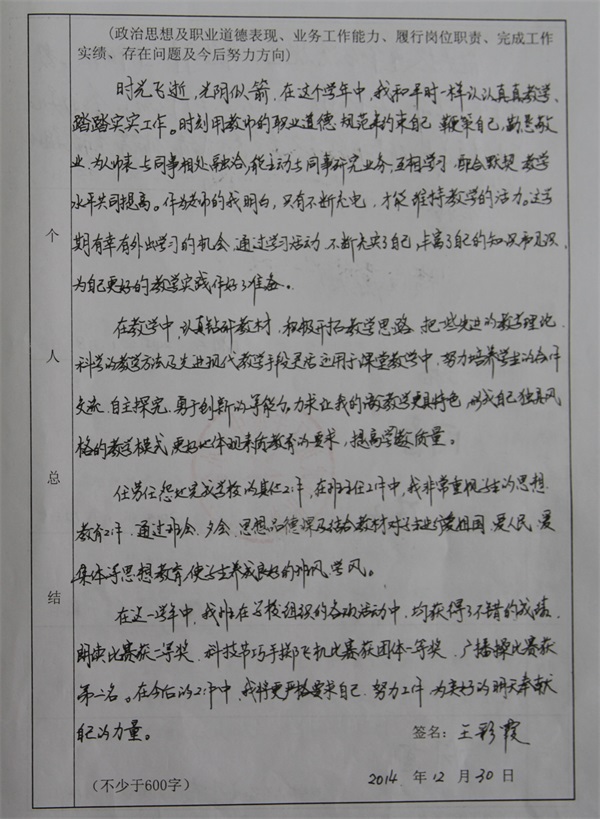 (政治思想及职业道德表现、业务工作能力、履行岗位职责、完成工作
实绩、存在问题及今后努力方向)
时光飞逝，光阴似箭，在这个学年中，我和平时一样认认真真教学、
踏踏实实工作。时刻用教师的职业道德规范来约束自己，鞭策自己，勤恳敬
业，为人师表，与同事相处融洽，能主动与同事研究业务，互相学习，配合默契，教学
水平共同提高。作为老师的我明白，只有不断充电，才能维持教学的活力。这学
期有幸有外出学习的机会，通过学习活动，不断充实了自己，丰富了自己的知识和见识，
为自己更好的教学实践作好了准备。
在教学中，认真钻研教材，积极开拓教学思路，把一些先进的教学理论、
科学的教学方法及先进现代教学手段灵活运用于课堂教学中，努力培养学生的合作
交流、自主探究、勇于创新的等能力。力求让我的教学更具特色，形成自己独具风
格的教学模式，更好地体现素质教育的要求，提高学数质量。
任劳任怨地完成学校的其他工作，在班主任工作中，我非常重视学生的思想
教育工作，通过班会、夕会、思想品德课及结合教材对学生进行爱祖国、爱人民、爱
集体等思想教育，使学生养成良好的班风、学风。
在这一学年中，我班在学校组织的各项活动中，均获得了不错的成绩，
朗读比赛获一等奖，科技节巧手掷飞机比赛获团体一等奖，广播操比赛获
第二名。在今后的工作中，我将更严格要求自己，努力工作，为美好的明天奉献
自己的力量。
签名：王彩霞
(不少于600字)
2014 年 12 月 30 日
个
人
总
结